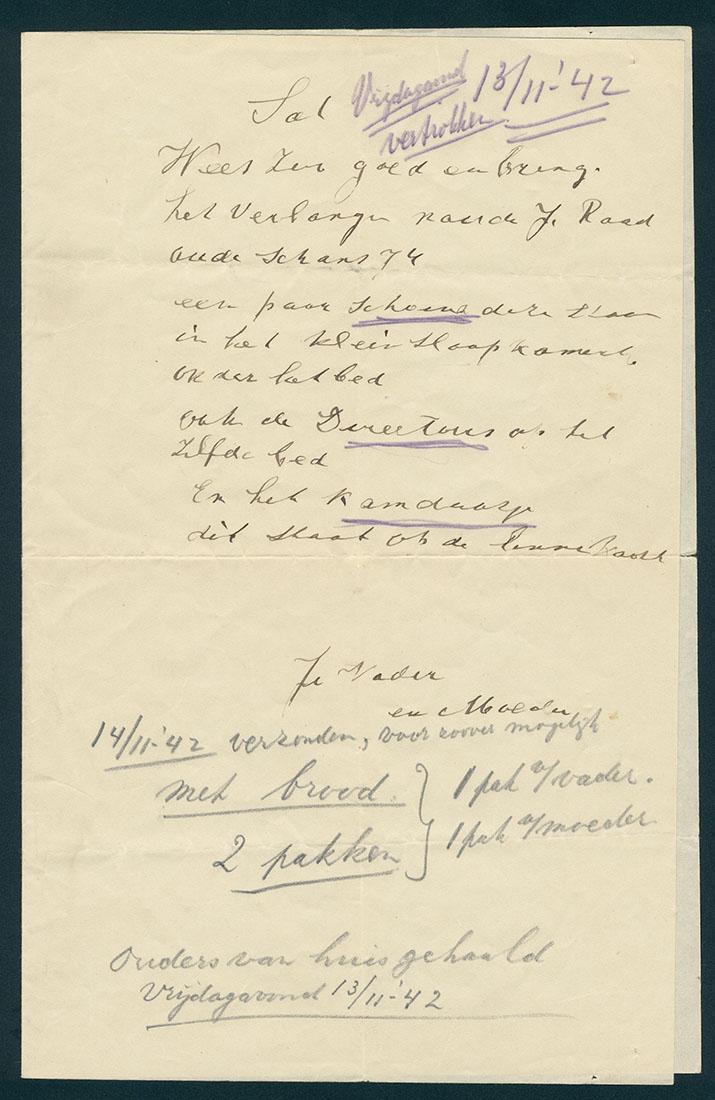 Sal
Vrijdagavond 13/11-'42
vertrokken
Wees zeer goed en breng
het verlangen van de J. Raad
oude schans 74
een paar schoene deze staan
in het klein slaapkamert,
onder het bed
ook de Directous op het
zelfde bed
En het kamdoosje
dit staat op de linnekast
Je Vader
en Moeder
14/11-'42 verzonden, voor zoover mogelijk
met brood.
1 pak v/vader.
2 pakken
1 pak v/moeder
Ouders van huis gehaald
Vrijdagavond 13/11-'42